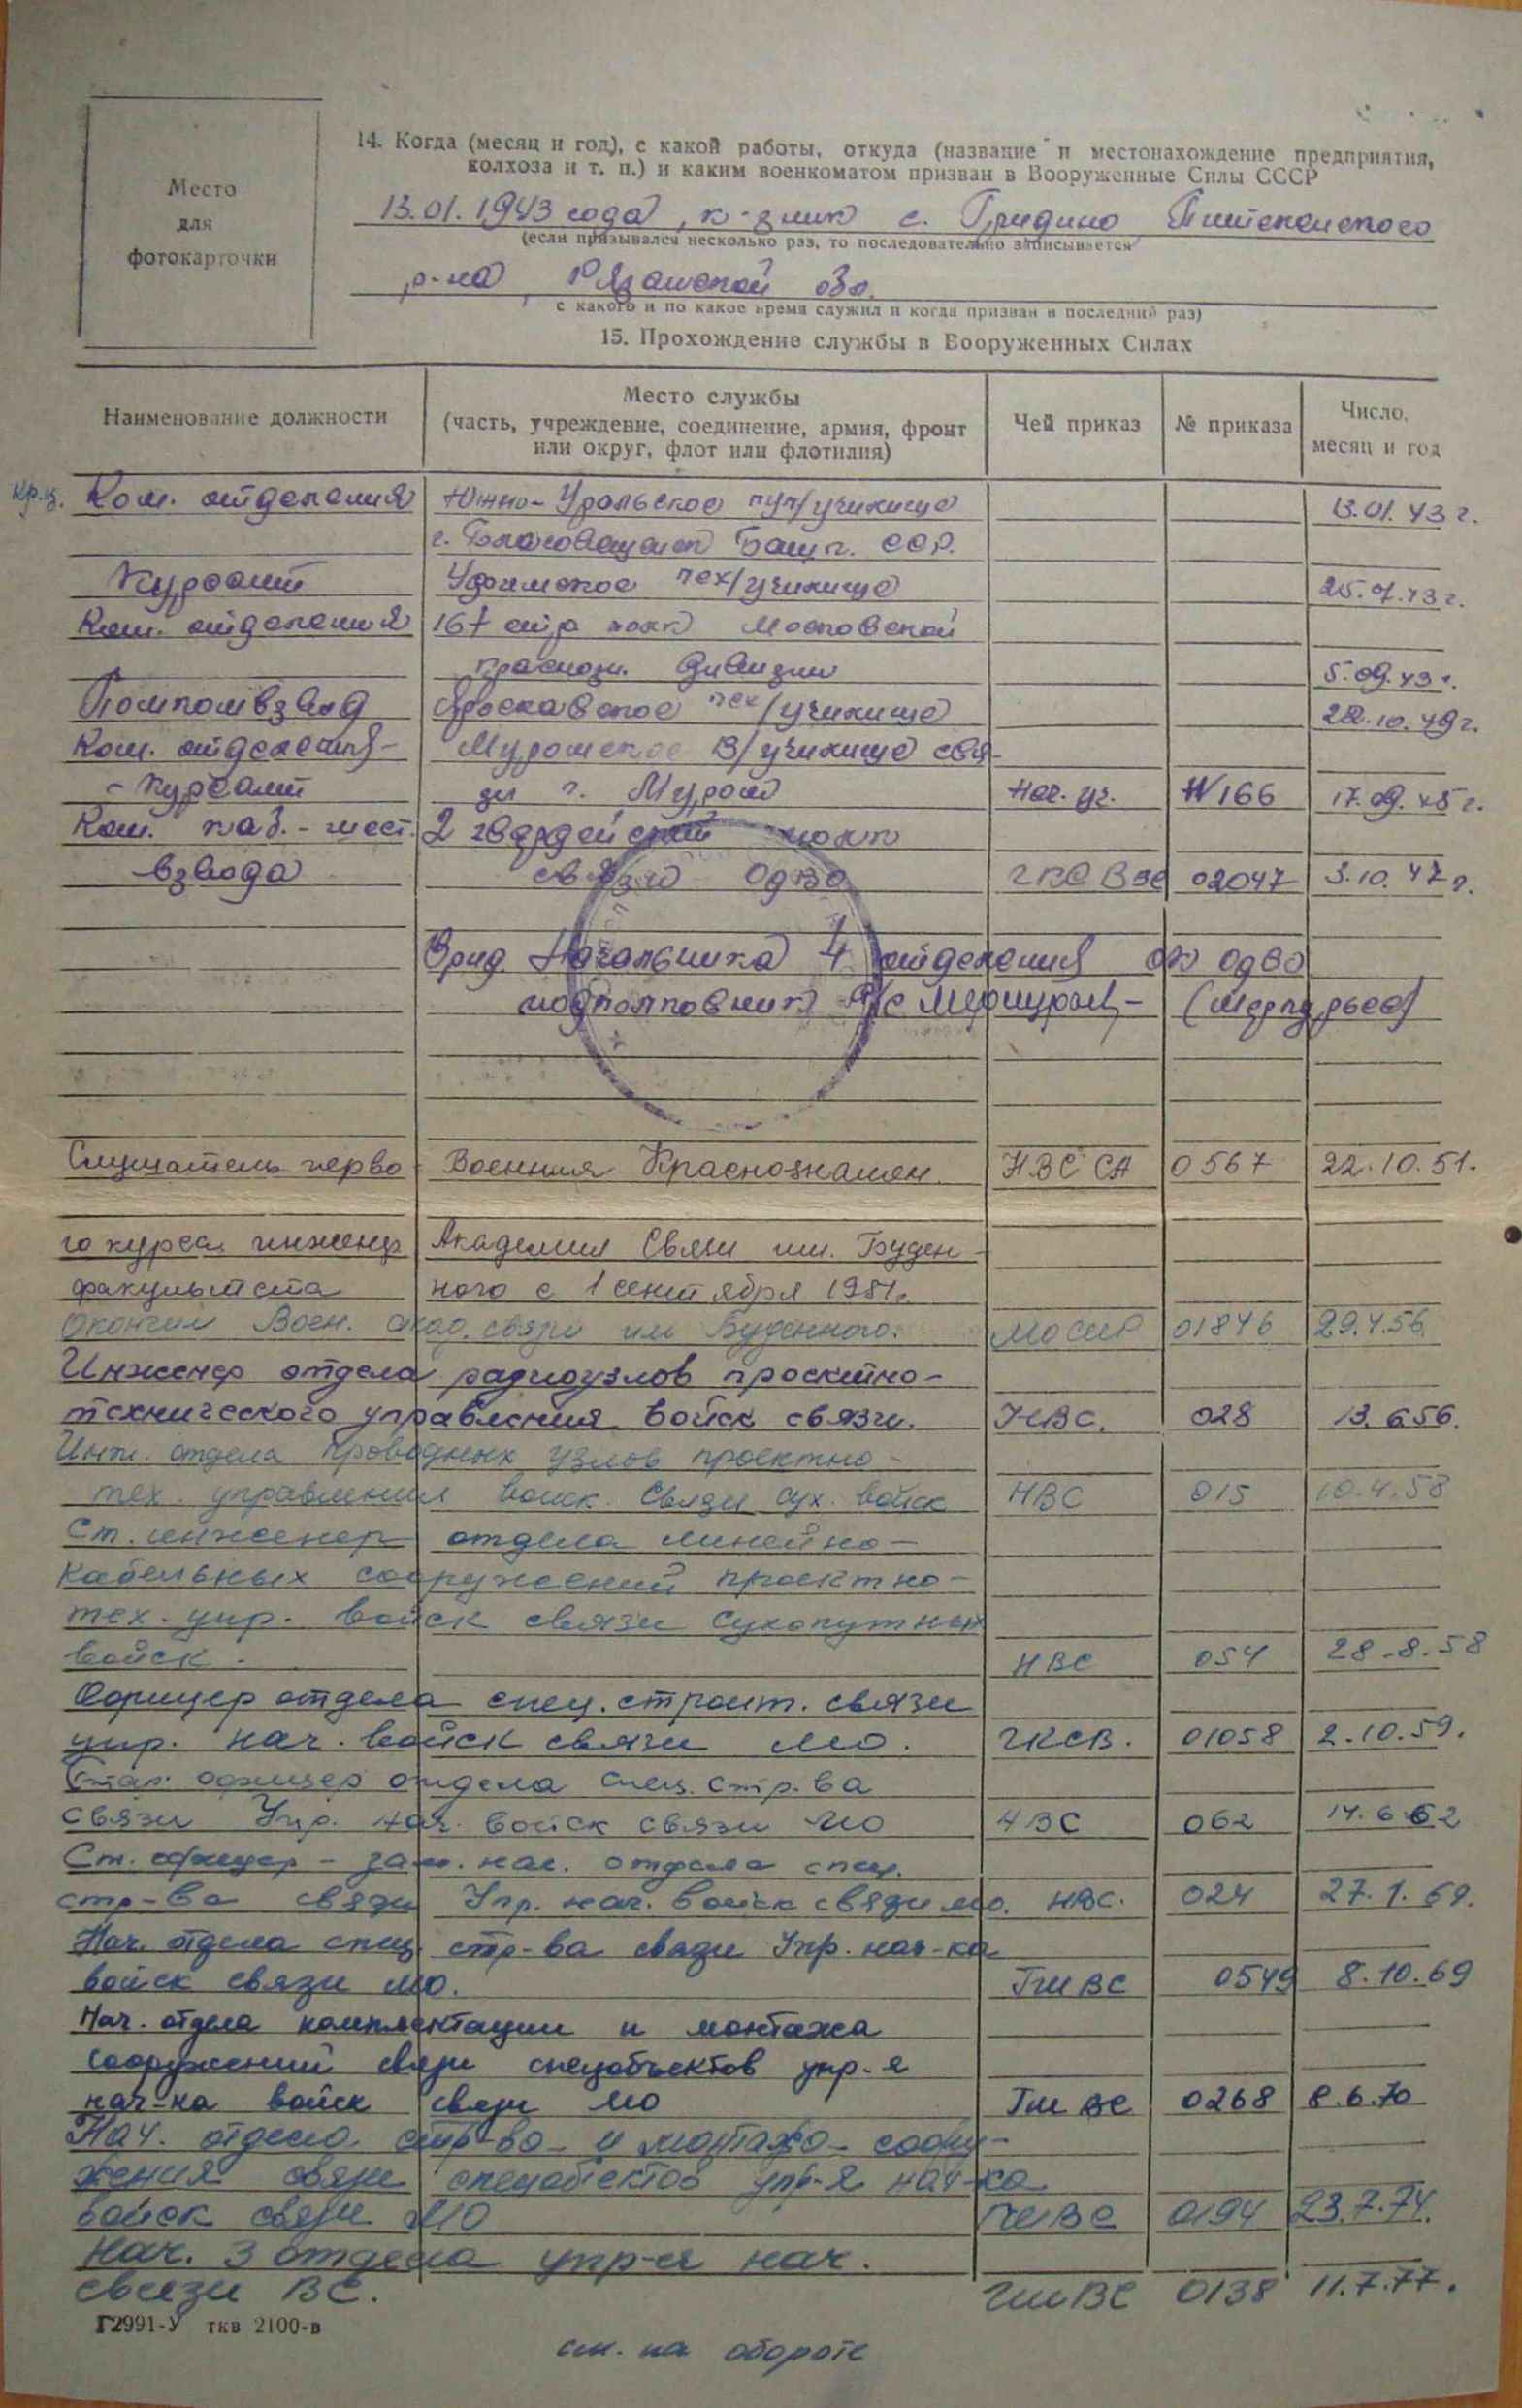 Место
для
фотокарточки
14. Когда (месяц и год), с какой работы, откуда (название и местонахождение предприятия,
колхоза и т. п.) и каким военкоматом призван в Вооруженные Силы СССР
13.01.1943 года, к-зник с. Гридино Пителинского
(если призывался несколько раз, то последовательно записывается
р-на, Рязанской обл.
с какого и по какое время служил и когда призван в последний раз)
15. Прохождение службы в Вооруженных Силах
Наименование должности
Место службы
(часть, учреждение, соединение, армия, фронт
или округ, флот или флотилия)
Чей приказ
№ приказа
Число,
месяц и год
Ком. отделения Южно-Уральское пул/училище 13.01.43 г.
г. Благовещенск Башк. ССР.
Курсант Уфимское пех/училище 25.7.43 г.
Ком. отделения 167 стр полк Московской
краснозн. дивизии 5.09.43 г.
Помкомвзвод Ярославское пех/училище
Ком. отделения- Муромское В/училище свя-
-курсант зи г. Муром Нач. уч. №166 17.09.45 г.
Ком. каб.-шест. 2 гвардейский полк
взвода связи ОдВО 02047 3.10.47 г.
Врид Начальника 4 отделения ОК ОдВО
подполковник а/с
Слушатель перво- Военная Краснознамен. НВС СА 0567 22.10.51.
го курса инженер Академия Связи им. Буден-
факультета ного с 1 сентября 1951г.
Окончил Воен. акад. связи им Буденного. 01846 29.4.56.
Инженер отдела радиоузлов проектно-
технического управления войск связи. НВС. 028 13.6.56.
Инж. отдела проводных узлов проектно-
тех. управления войск. Связи сух. войск НВС 015 10.4.58
Ст. инженер отдела линейно-
кабельных сооружений проектно-
тех. упр. войск связи Сухопутных
войск. НВС 054 28.8.58
Офицер отдела спец. строит. связи
упр. нач. войск связи МО. ГКСВ. 01058 2.10.59.
Стар. офицер отдела спец. стр. ва
связи Упр. нач. войск связи МО НВС 062 14.6.62
Ст. офицер - зам. нач. отдела спец.
стр-ва связи Упр. нач. войск связи МО. НВС. 024 27.1.69.
Нач. отдела спец. стр-ва связи Упр. нач-ка
войск связи МО. ГШ ВС 0549 8.10.69
Нач. отдела комплектации и монтажа
сооружений связи спецобъектов упр-я
нач-ка войск связи МО ГШ ВС 0268 8.6.70
Нач. отдела стр-ва и монтажа соору-
жения связи спецобъектов упр-я нач-ка
войск связи МО ГШ ВС 0194 23.7.74.
Нач. 3 отдела упр-я нач.
связи ВС. ГШ ВС 0138 11.7.77.
Г2991-У ткв 2100-в
см. на обороте